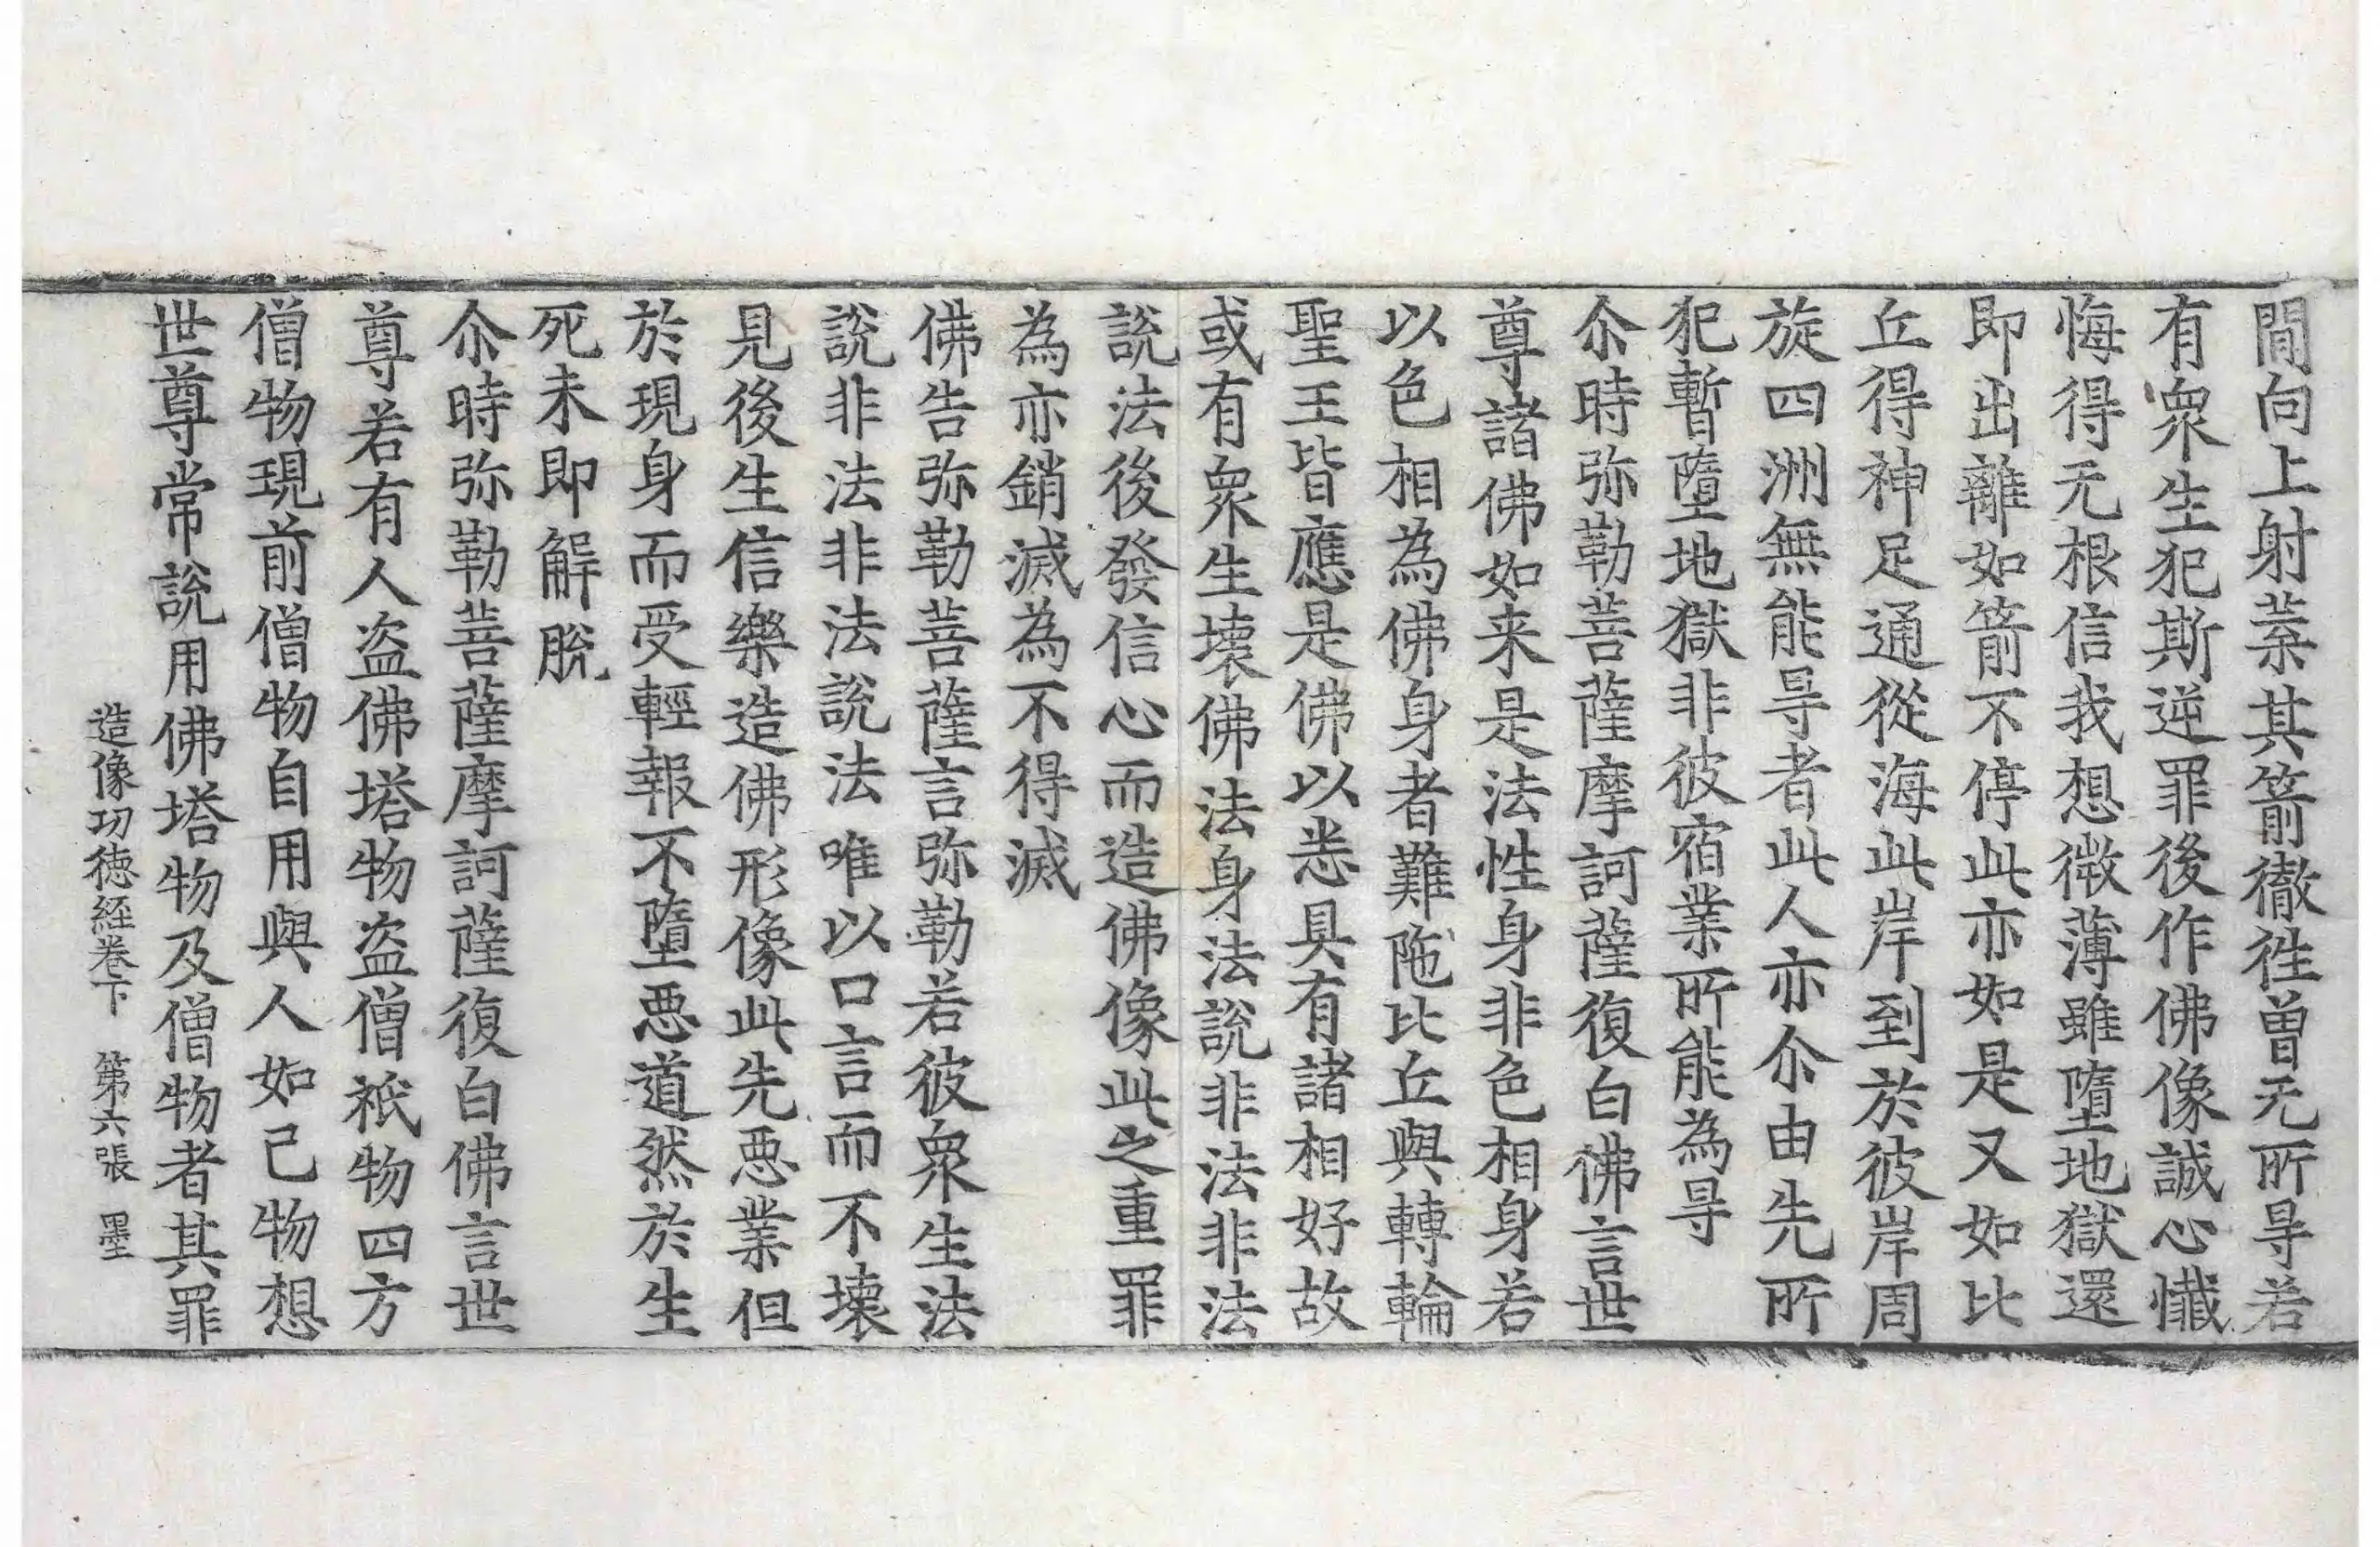 間向上射葉其箭徹徃曽无所㝵若
有衆生犯斯逆罪後作佛像誠心懺
悔得无根信我想微薄雖墮地獄還
即出離如箭不停此亦如是又如比
丘得神足通從海此岸到於彼岸周
旋四洲無能㝵者此人亦尒由先所
犯暫墮地獄非彼宿業所能為㝵
尒時弥勒菩薩摩訶薩復白佛言世
尊諸佛如来是法性身非色相身若
以色相為佛身者難陁比丘與轉輪
聖王皆應是佛以悉具有諸相好故
或有衆生壊佛法身法說非法非法
說法後發信心而造佛像此之重罪
為亦銷滅為不得滅
佛告弥勒菩薩言弥勒若彼衆生法
說非法非法說法唯以口言而不壊
見後生信樂造佛形像此先悪業但
於現身而受輕報不墮悪道然於生
死未即解脫
尒時弥勒菩薩摩訶薩復白佛言世
尊若有人盗佛塔物盗僧祇物四方
僧物現前僧物自用與人如己物想
世尊常說用佛塔物及僧物者其罪
造像功徳経卷下 第六張 墨